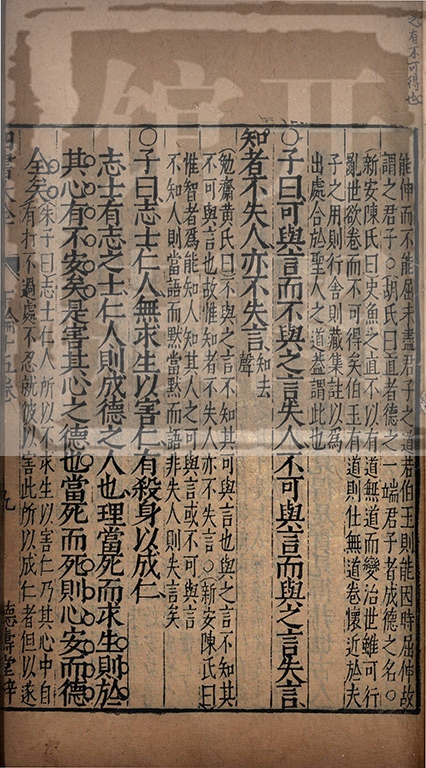 之有不可得也
能伸而不能屈未盡君子之道若伯玉則能因時屈伸故
謂之君子○胡氏曰直者德之一端君子者成德之名○
新安陳氏曰史魚之直不以有道無道而變治世雖可行
亂世欲卷而不可得矣伯玉有道則仕無道卷懷近於夫
子之用則行舍則藏集註以為
出處合於聖人之道蓋謂此也
○子曰可與言而不與之言失人不可與言而與之言失言
知者不失人亦不失言 知去聲
勉齋黃氏曰不與之言不知其可與言也與之言不知其
不可與言也故惟知者不失人亦不失言○新安陳氏曰
惟智者爲能知人知其人之可與言或不可與言
不知人則當語而默當默而語非失人則失言矣
○子曰志士仁人無求生以害仁有殺身以成仁
志士有志之士仁人則成德之人也理當死而求生則於
其心有不安矣是害其心之德也當死而死則心安而德
全矣 朱子曰志士仁人所以不求生以害仁乃其心中自
有打不過處不忍就彼以害此所以成仁者但以遂
九
德壽堂梓